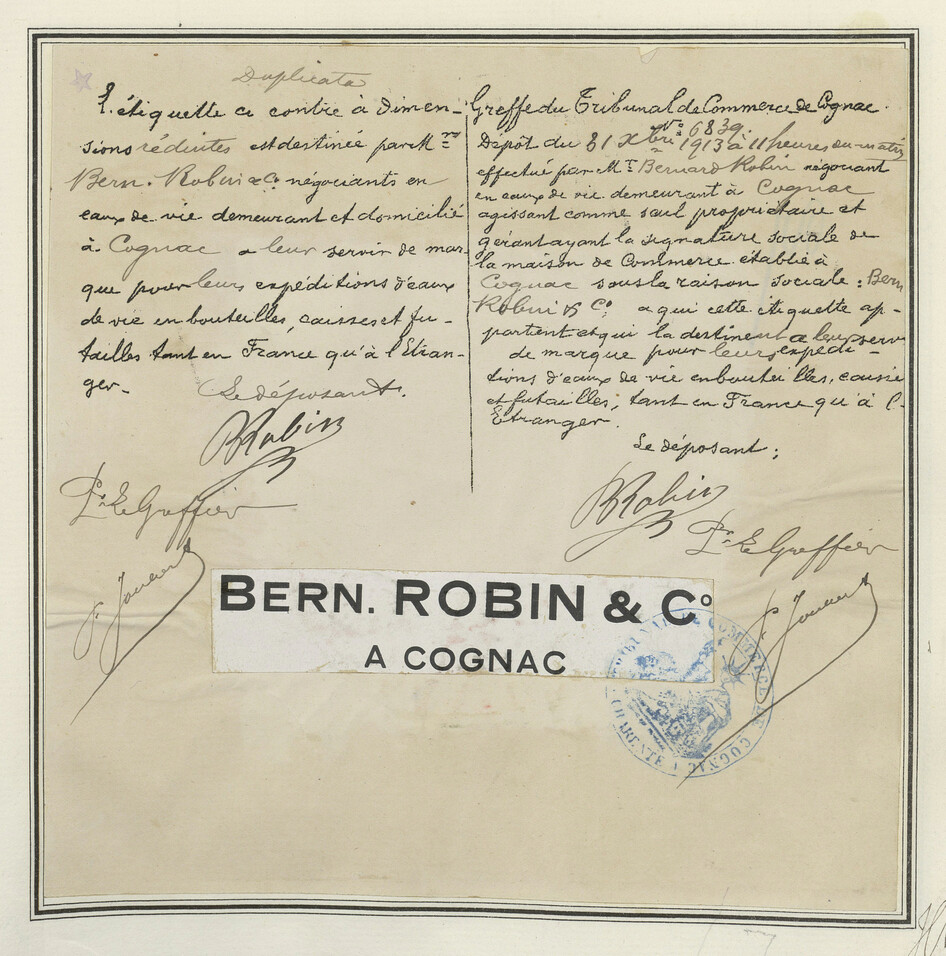 Duplicata
L'étiquette ci contre à dimen-
sions réduites est destinée par Mrs
Bern. Robin & Co négociants en
eaux de vie demeurant et domicilié
à Cognac a leur servir de mar-
que pour leurs expéditions d'eaux
de vie en bouteilles, caisses et fu-
tailles tant en France qu'à l'Etran-
ger.
Le déposant.
BRobin
Pr Le Greffier
Greffe du Tribunal de Commerce de Cognac.
No 6839.
Dépôt du 31 Xbre 1913 à 11 heures du matin
effectué par Mr Bernard Robin négociant
en eaux de vie demeurant à Cognac
agissant comme seul propriétaire et
gérant ayant la signature sociale de
la maison de Commerce établie à
Cognac sous la raison sociale: Bern
Robin & Co, a qui cette étiquette ap-
partient et qui la destinent a leur servir
de marque pour leurs expédi-
tions d'eaux de vie en bouteilles, caisses
et futailles, tant en France qu'à l'-
Etranger.
Le déposant;
BRobin
Pr Le Greffier
BERN. ROBIN & Co
A COGNAC
TRIBUNAL DE COMMERCE DE COGNAC
CHARENTE